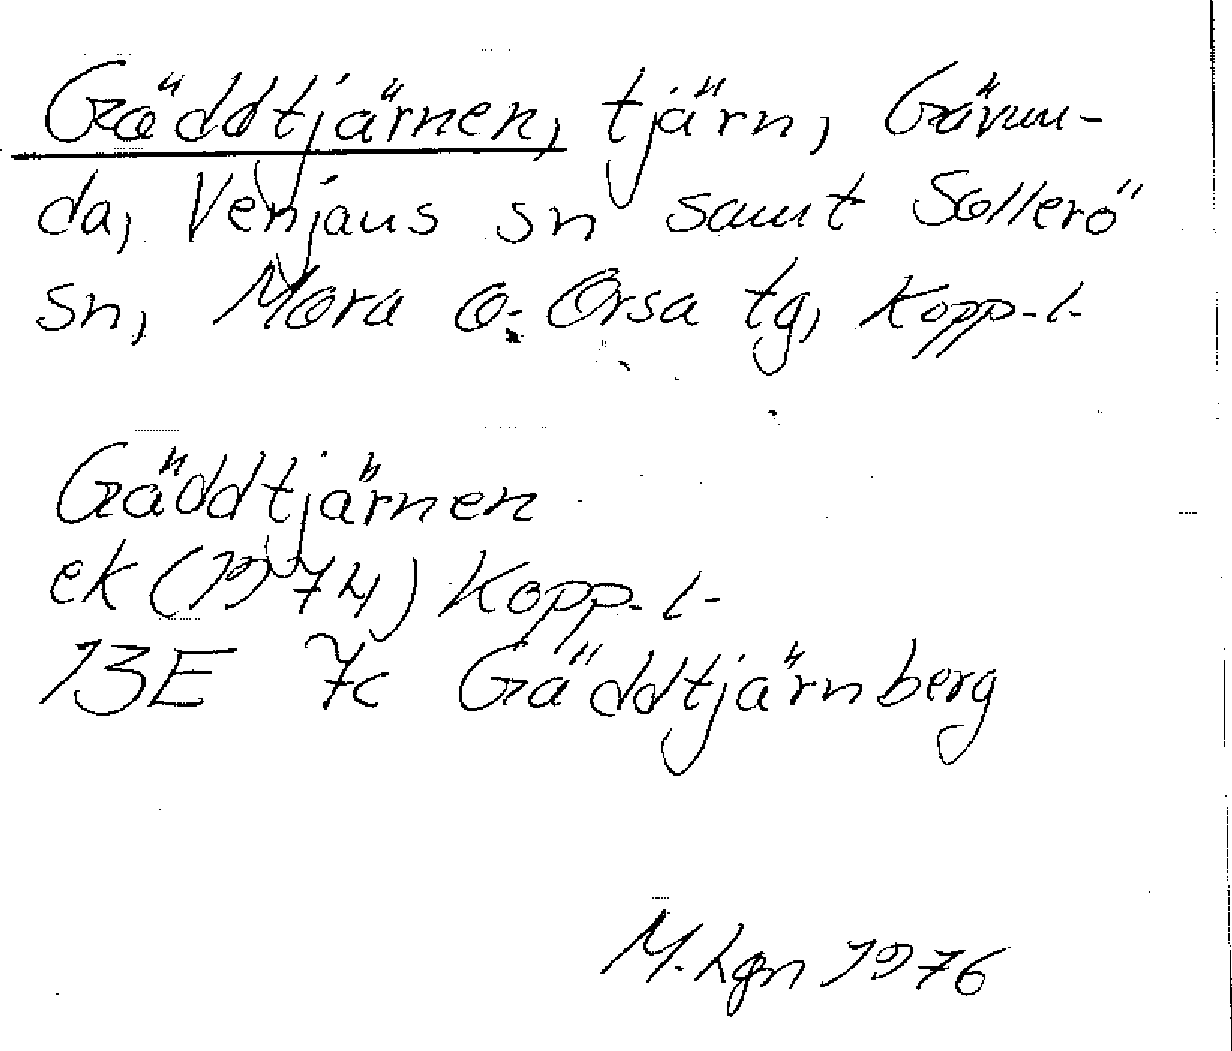 Gäddtjärnen, tjärn, Gävun-
da, Venjans sn samt Sollerö
sn, Mora o. Orsa tg, Kopp. l.
Gäddtjärnen
ek (1974) Kopp. l.
13E 7c Gäddtjärnberg
M. Lgn 1976